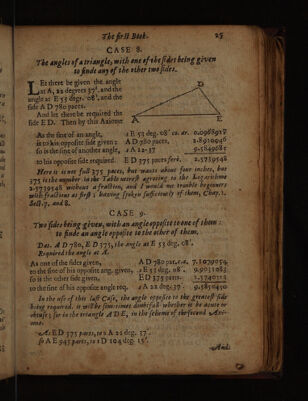 The first Book. 25
CASE 8.
The angles of a triangle, with one of the sides being given
to finde any of the other two sides.
LEt there be given the angle
at A, 22 degrees 37', and the
angle at E 53 degr. 08', and the
side A D 780 parts.
And let there be required the
side E D. Then by this Axiome
D
A E
As the sine of an angle, 1 E 53 deg. 08' co. ar. 0.0968917
is to his opposite side given: A D 780 parts, 2.8920946
so is the sine of another angle, 2 A 22.37 9.5849685
to his opposite side required. E D 375 parts ferè. 2.5739548
Here is not full 375 parts, but wants about four inches, but
375 is the number in the Table neerest agreeing to the Logarithme
2.5739548 without a fraction, and I would not trouble beginners
with fractions at first; having spoken sufficiently of them, Chap. 1.
Sect. 7. and 8.
CASE 9.
Two sides being given, with an angle opposite to one of them:
to finde an angle opposite to the other of them.
Dat. A D 780, E D 375, the angle at E 53 deg. 08'.
Required the angle at A.
As one of the sides given, A D 780 par. c. a. 7.1079054
to the sine of his opposite ang. given, 1 E 53 deg. 08'. 9.9031083
so is the other side given, E D 375 parts. 2.5740313
to the sine of his opposite angle req. 2 A 22 deg. 37'. 9.5850450
In the use of this last Case, the angle opposite to the greatest side
being required, it will be sometimes doubtfull whether it be acute or
obtuse; for in the triangle A D E, in the scheme of the second Axi-
ome.
As E D 375 parts, to 2 A 22 deg. 37'.
so A E 945 parts, to 1 D 104 deg. 15'.
And: